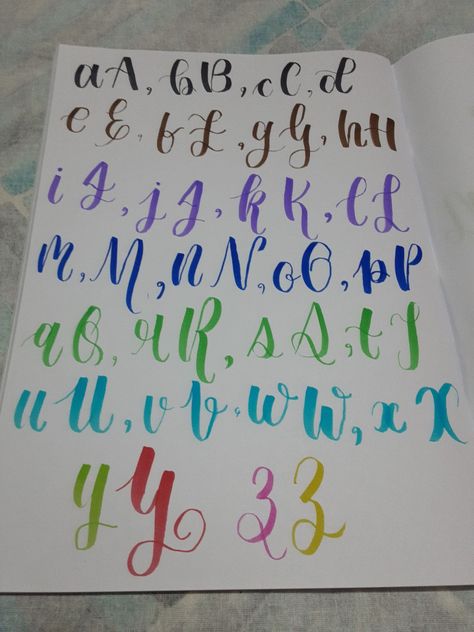 aA, bB, cC, d
eE, fF, gG, hH
iI, jJ, kK, lL
mM, nN, oO, pP
qQ, rR, sS, tT
uU, vV, wW, xX
yY zZ